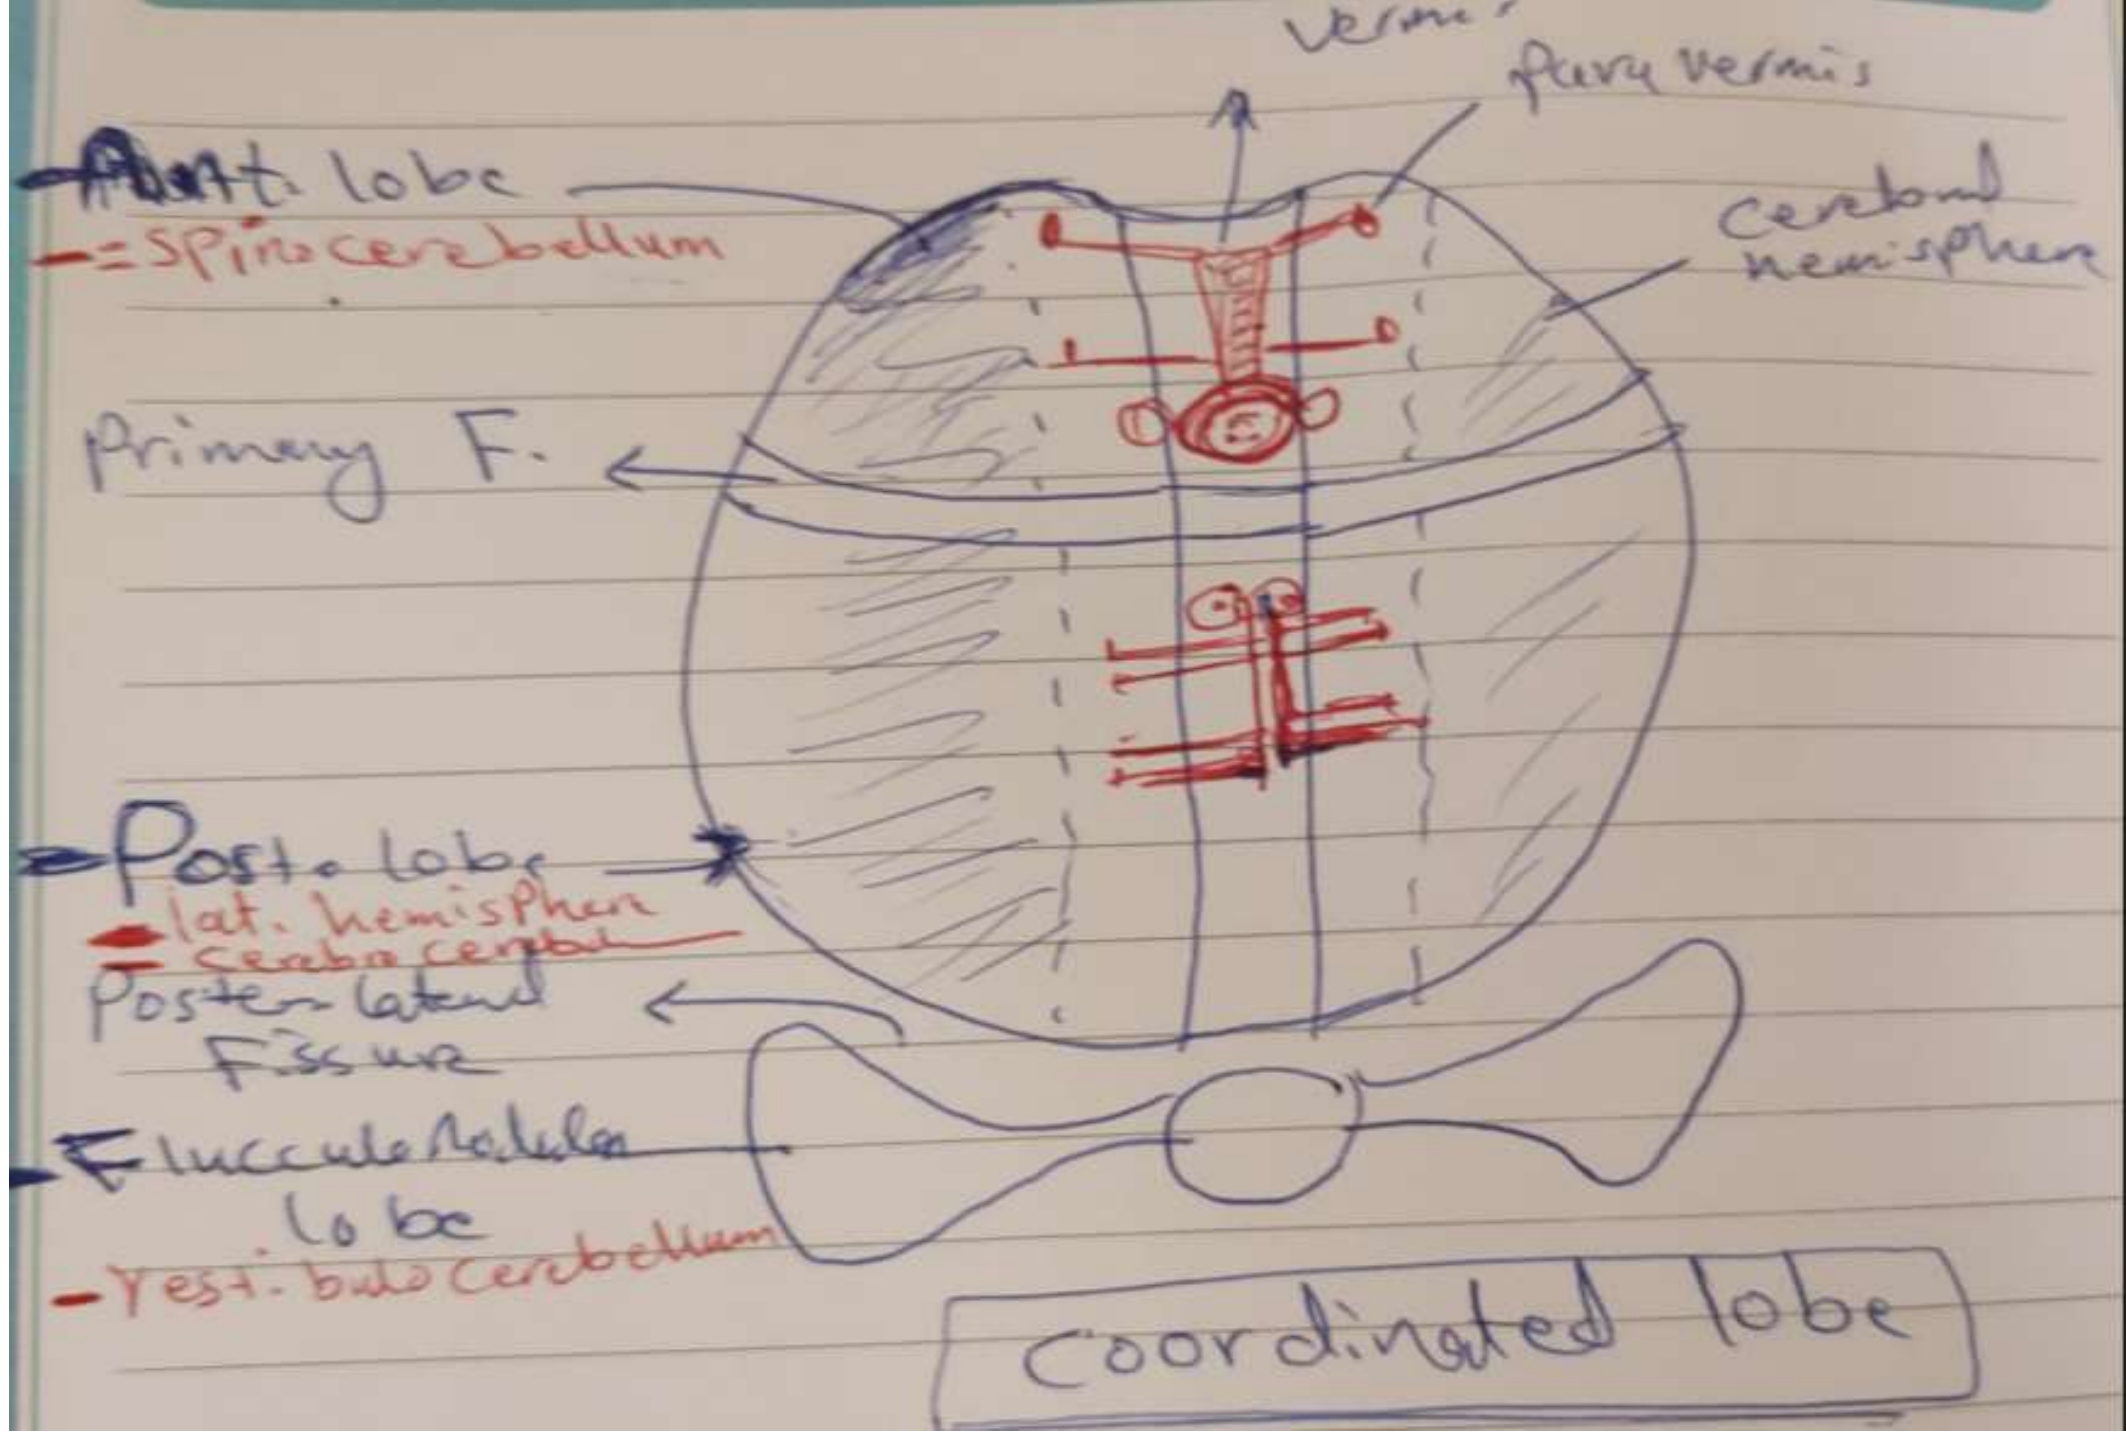 Vermis
para vermis
Ant. lobe
= Spinocerebellum
cerebral
hemisphere
Primary F.
Post. lobe
lat. hemisphere
cerebrocerebel
Postero lateral
Fissure
Flucculo Nodular
lobe
- Vestibulo cerebellum
coordinated lobe